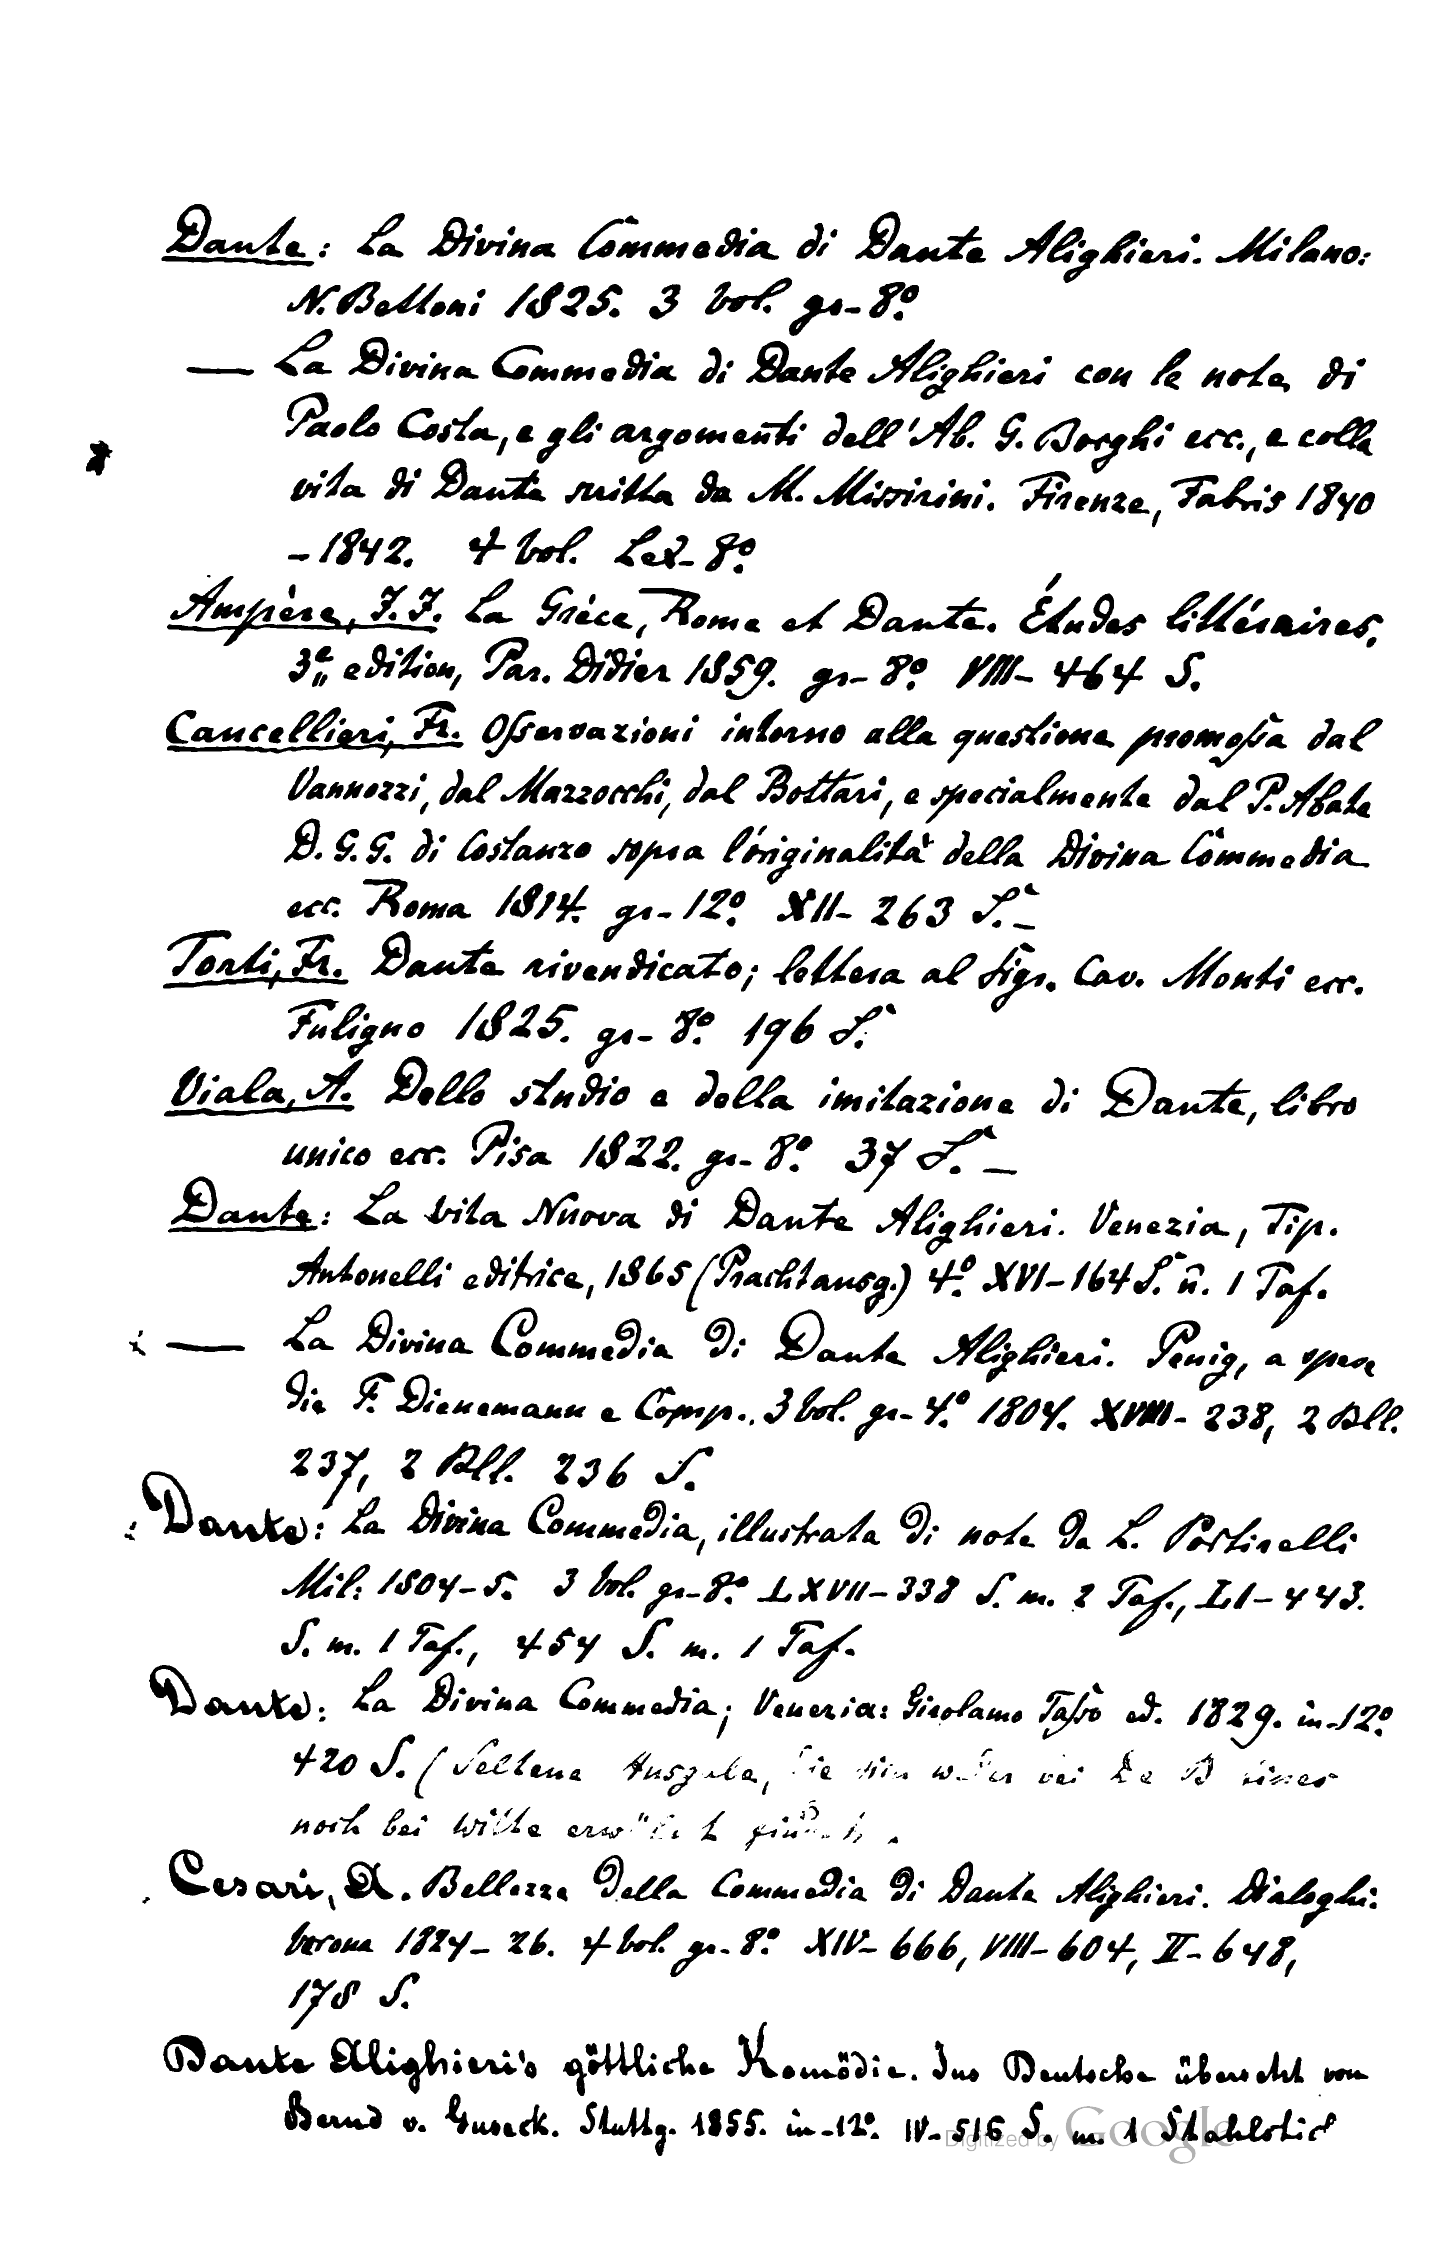 Dante: La Divina Commedia di Dante Alighieri. Milano:
N. Bettoni 1825. 3 Vol. gr-8º.
— La Divina Commedia di Dante Alighieri con le note di
Paolo Costa, e gli argomenti dell'Ab. G. Borghi ecc., e colla
vita di Dante scritta da M. Missirini. Firenze, Fabris 1840
-1842. 4 Vol. Lex-8º.
Ampère, J. J. La Grèce, Rome et Dante. Études littéraires.
3e edition, Par. Didier 1859. gr-8º. VIII-464 S.
Cancellieri, Fr. Osservazioni intorno alla questione promossa dal
Vannozzi, dal Mazzocchi, dal Bottari, e specialmente dal P. Abate
D. G. G. di Costanzo sopra l'originalità della Divina Commedia
ecc. Roma 1814. gr-12º. XII-263 S. —
Torti, Fr. Dante rivendicato; lettera al Sigr. Cav. Monti ecc.
Fuligno 1825. gr-8º. 196 S.
Viala, A. Dello studio e della imitazione di Dante, libro
unico ecc. Pisa 1822. gr-8º. 37 S. —
Dante: La Vita Nuova di Dante Alighieri. Venezia, Tip.
Antonelli editrice, 1865 (Prachtausg.) 4º. XVI-164 S. u. 1 Taf.
— La Divina Commedia di Dante Alighieri. Penig, a spese
die F. Dienemann e Comp., 3 Vol. gr-4.º 1804. XVIII-238, 2 Bll.
237, 2 Bll. 236 S.
Dante: La Divina Commedia, illustrata di note da L. Portirelli
Mil: 1804-5. 3 Vol. gr-8º. LXVII-338 S. m. 2 Taf., LI-443.
S. m. 1 Taf., 454 S. m. 1 Taf.
Dante: La Divina Commedia; Venezia: Girolamo Tasso ed. 1829. in-12º.
420 S. (Seltene Ausgabe, die sich weder bei De B
noch bei Witte erwähnt findet.
Cesari, A. Bellezze della Commedia di Dante Alighieri. Dialoghi.
Verona 1824-26. 4 Vol. gr-8º. XIV-666, VIII-604, II-648,
178 S.
Dante Alighieri's göttliche Komödie. Ins Deutsche übersetzt von
Bernd v. Guseck. Stuttg. 1855. in-12º. IV-516 S. m. 1 Stahlstich
Digitized by Google